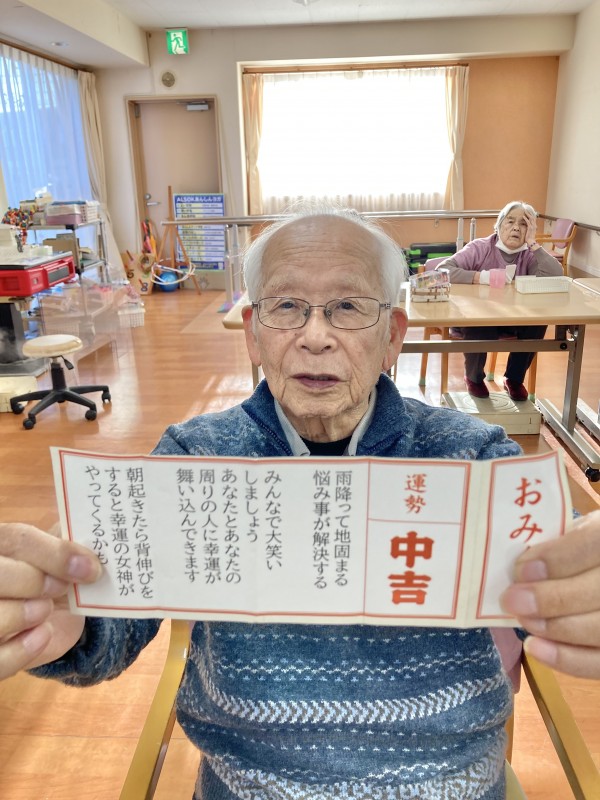 おみ
運勢
中吉
雨降って地固まる
悩み事が解決する
みんなで大笑い
しましょう
あなたとあなたの
周りの人に幸運が
舞い込んできます
朝起きたら背伸びを
すると幸運の女神が
やってくるかも